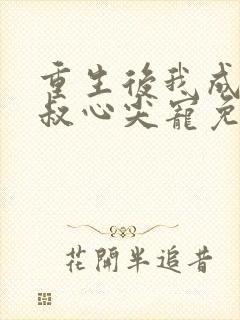 重生後我成
叔心尖寵免
花開半追昔